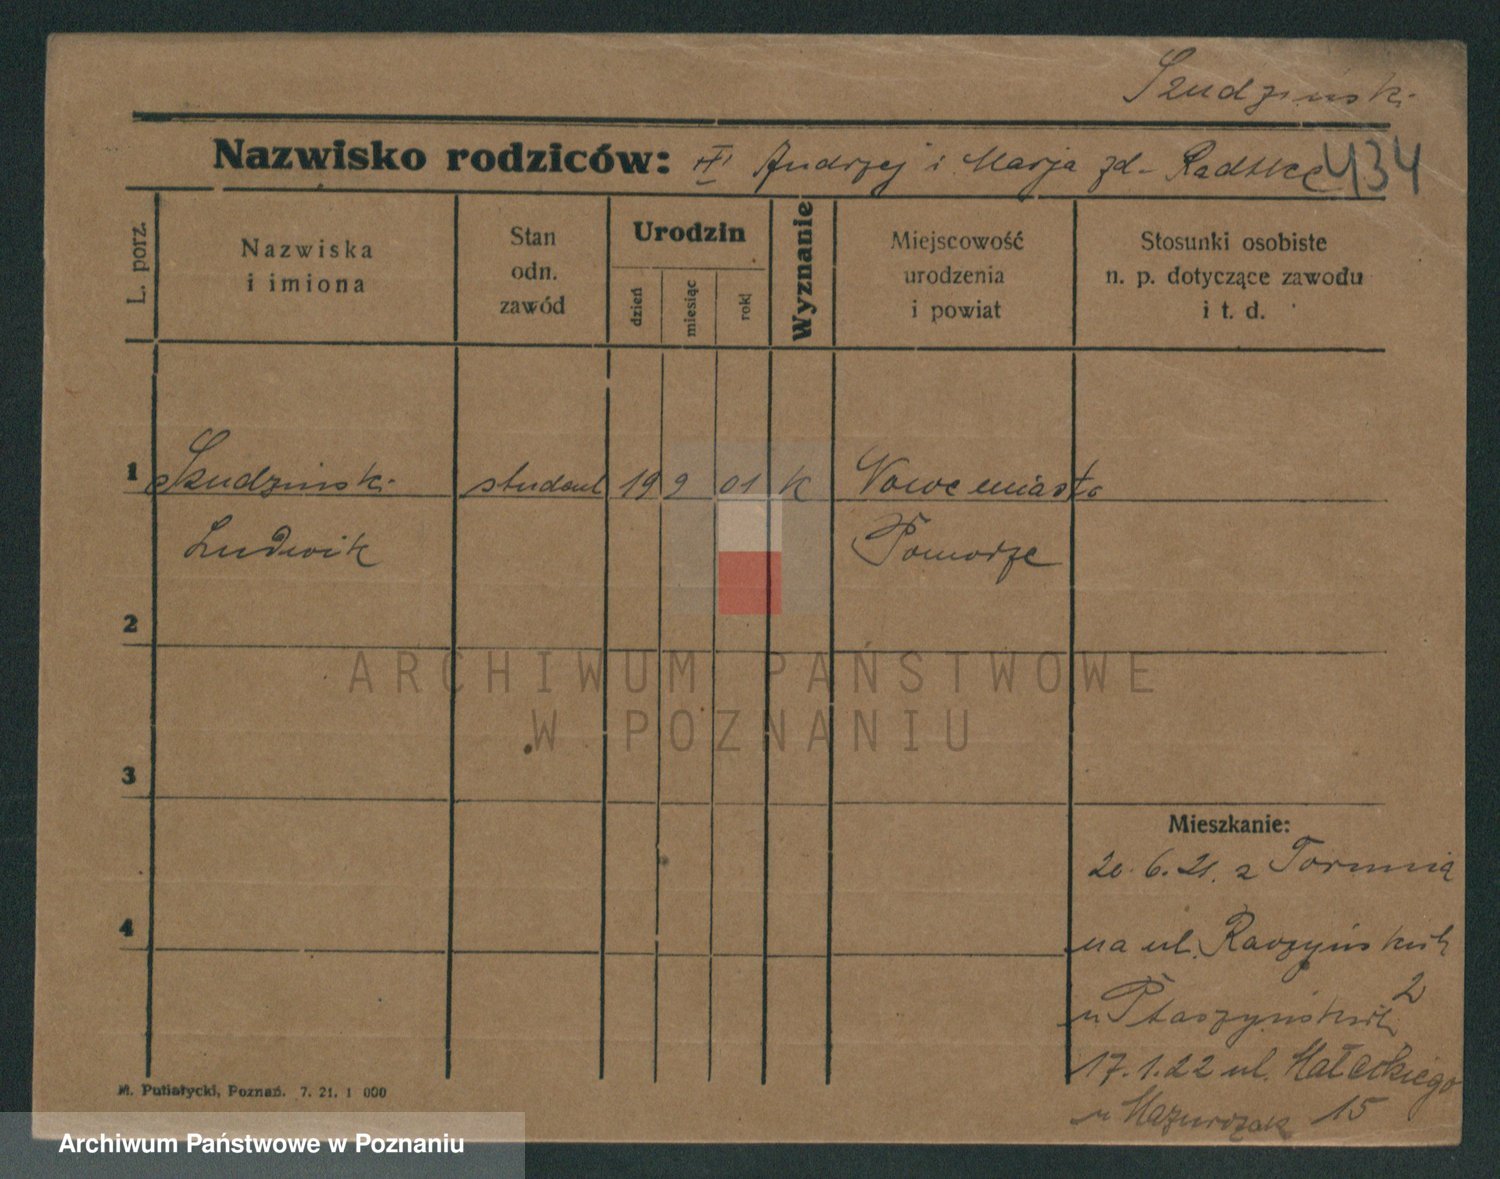 Szudziński
Nazwisko rodziców: Andrzej i Marja zd. Radtke 434
L. porz.
Nazwiska
i imiona
Stan
odn.
zawód
Urodzin
dzień
miesiąc
rok
Wyznanie
Miejscowość
urodzenia
i powiat
Stosunki osobiste
n. p. dotyczące zawodu
i t. d.
1 Szudziński student 19 9 01 k Nowemiasto
Ludwik Pomorze
2
3
4
Mieszkanie:
20.6.21. z Torunia
na ul. Raczyńskich
2
u Ptaszyńskich
17.1.22 ul. Małeckiego
u Mazurczak 15
M. Putiatycki, Poznań. 7. 21. 1 000
ARCHIWUM PAŃSTWOWE
W POZNANIU
Archiwum Państwowe w Poznaniu